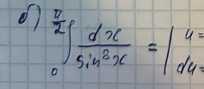 б) ∫_0^{π/2} dx / sin³x = | u =
du =